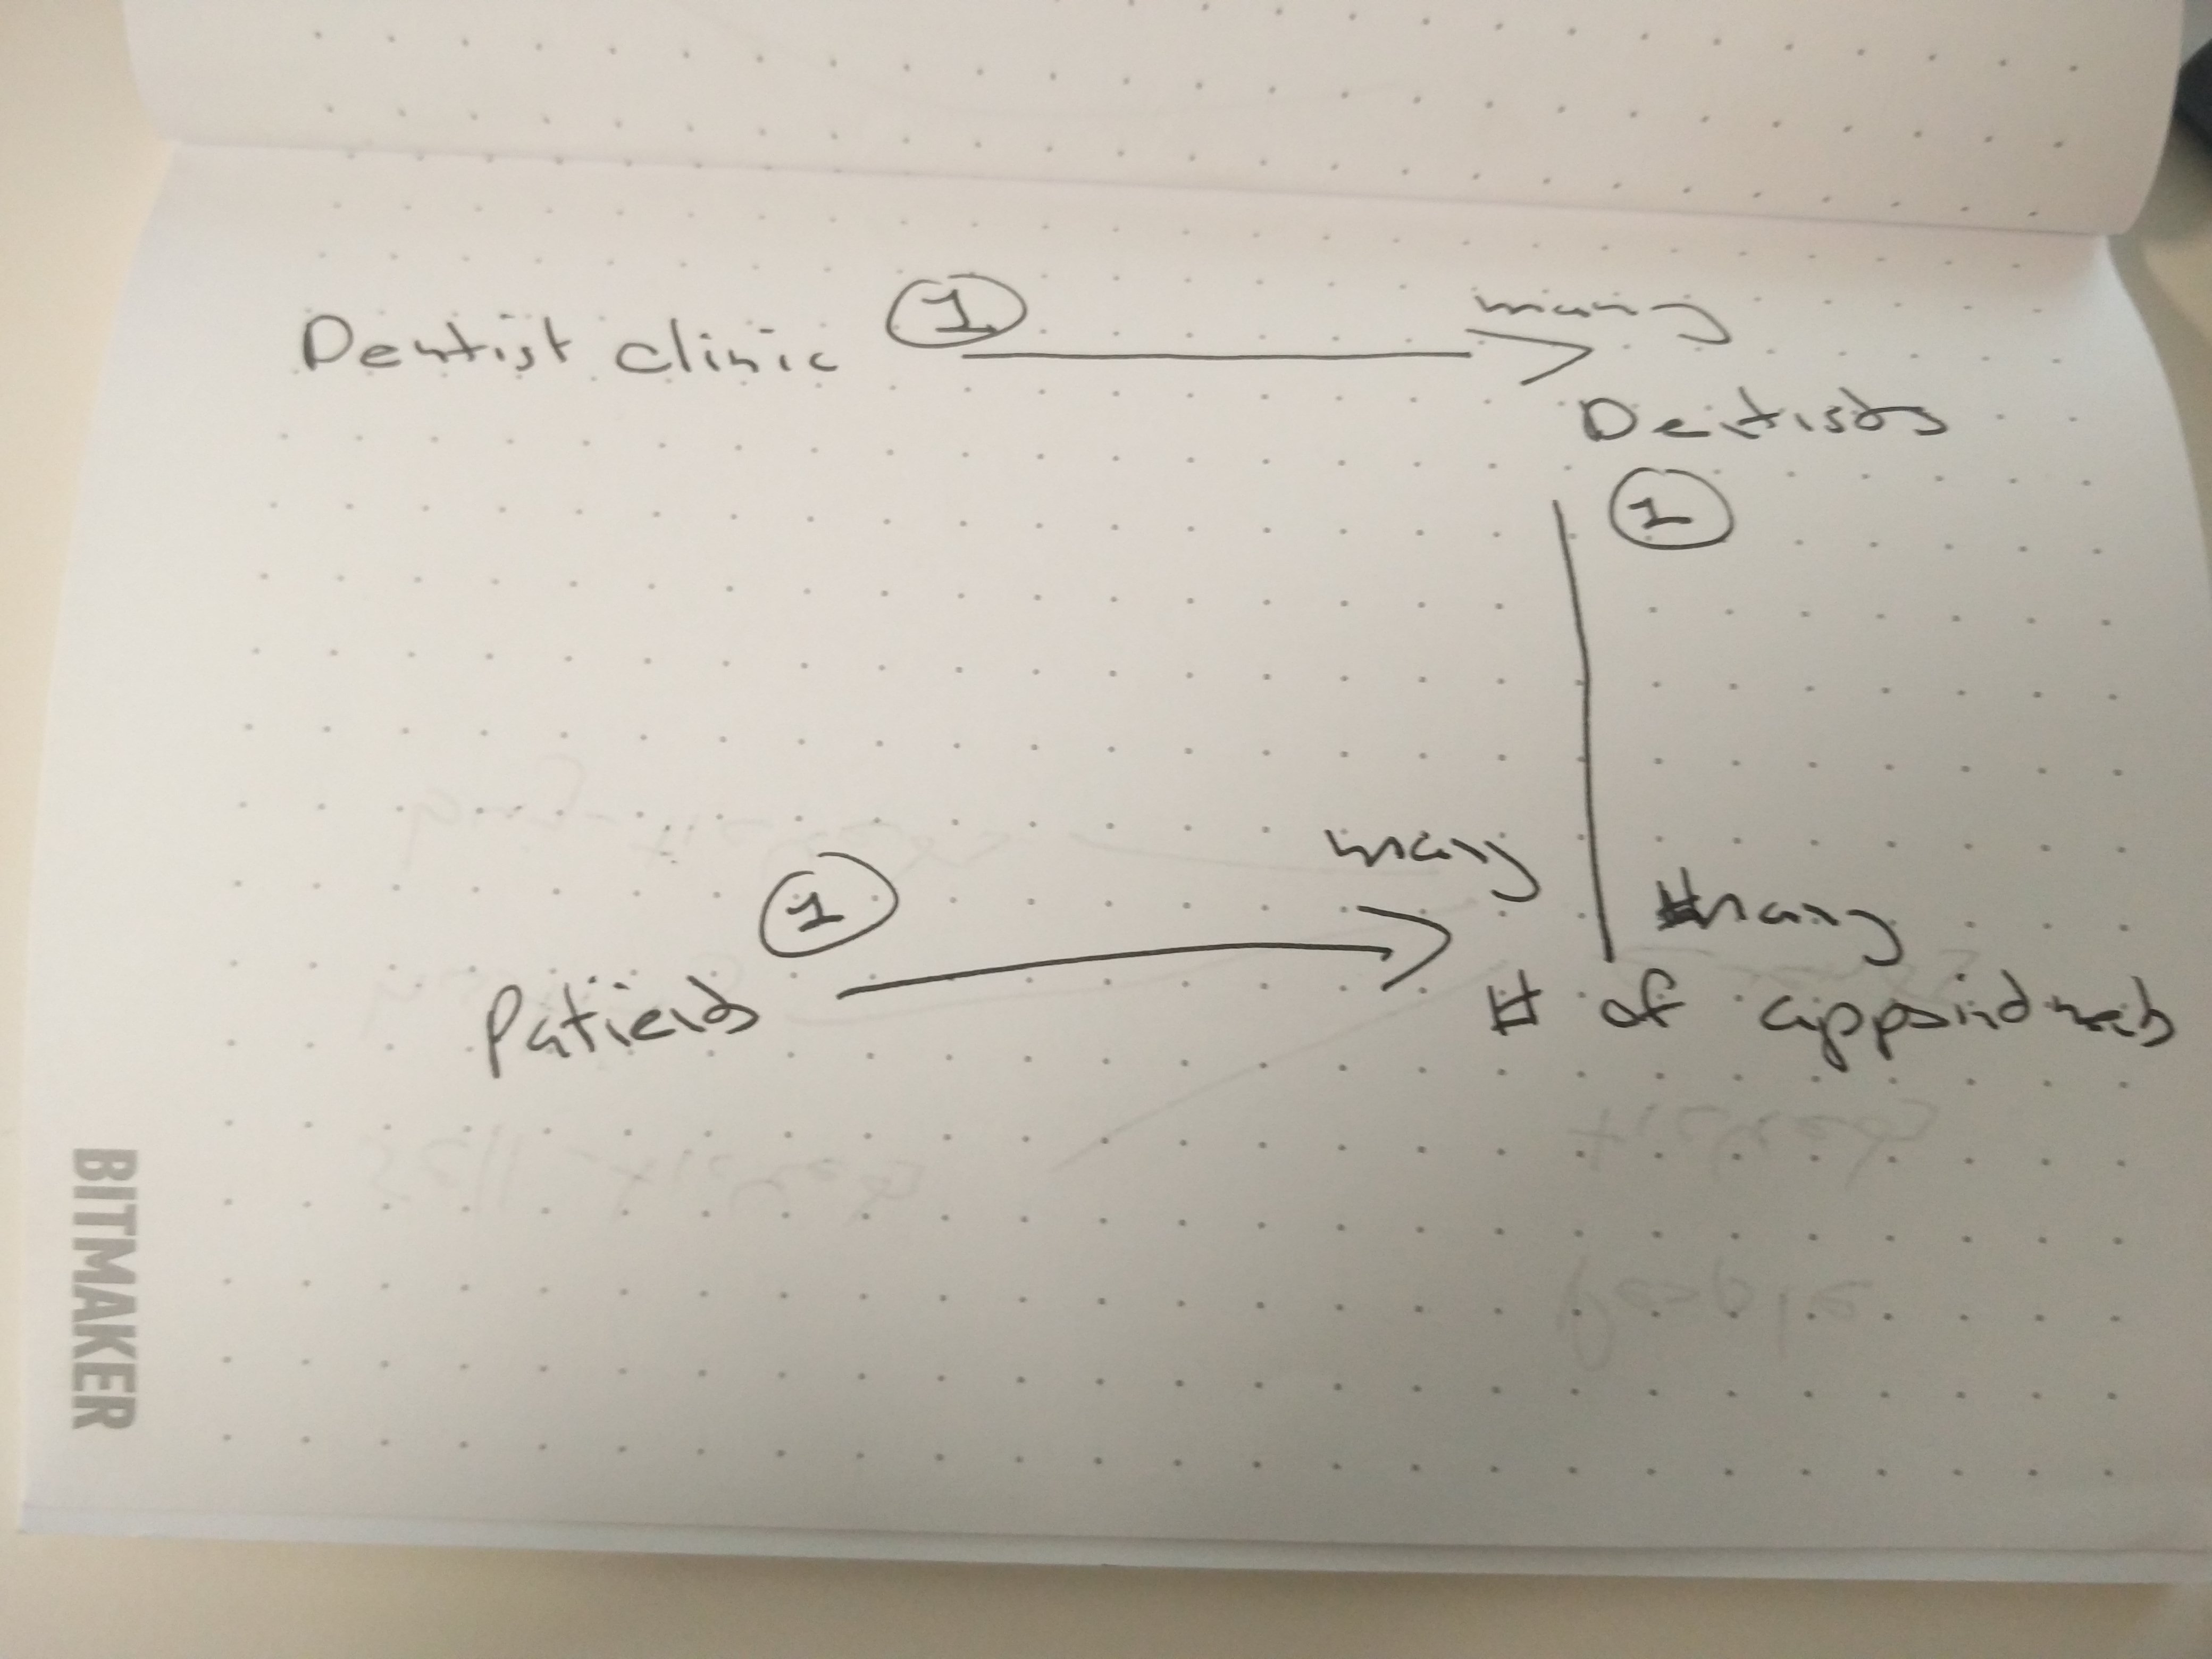 Dentist clinic 1 many
Dentists
1
many
1
many
Patients
# of appointments
BITMAKER